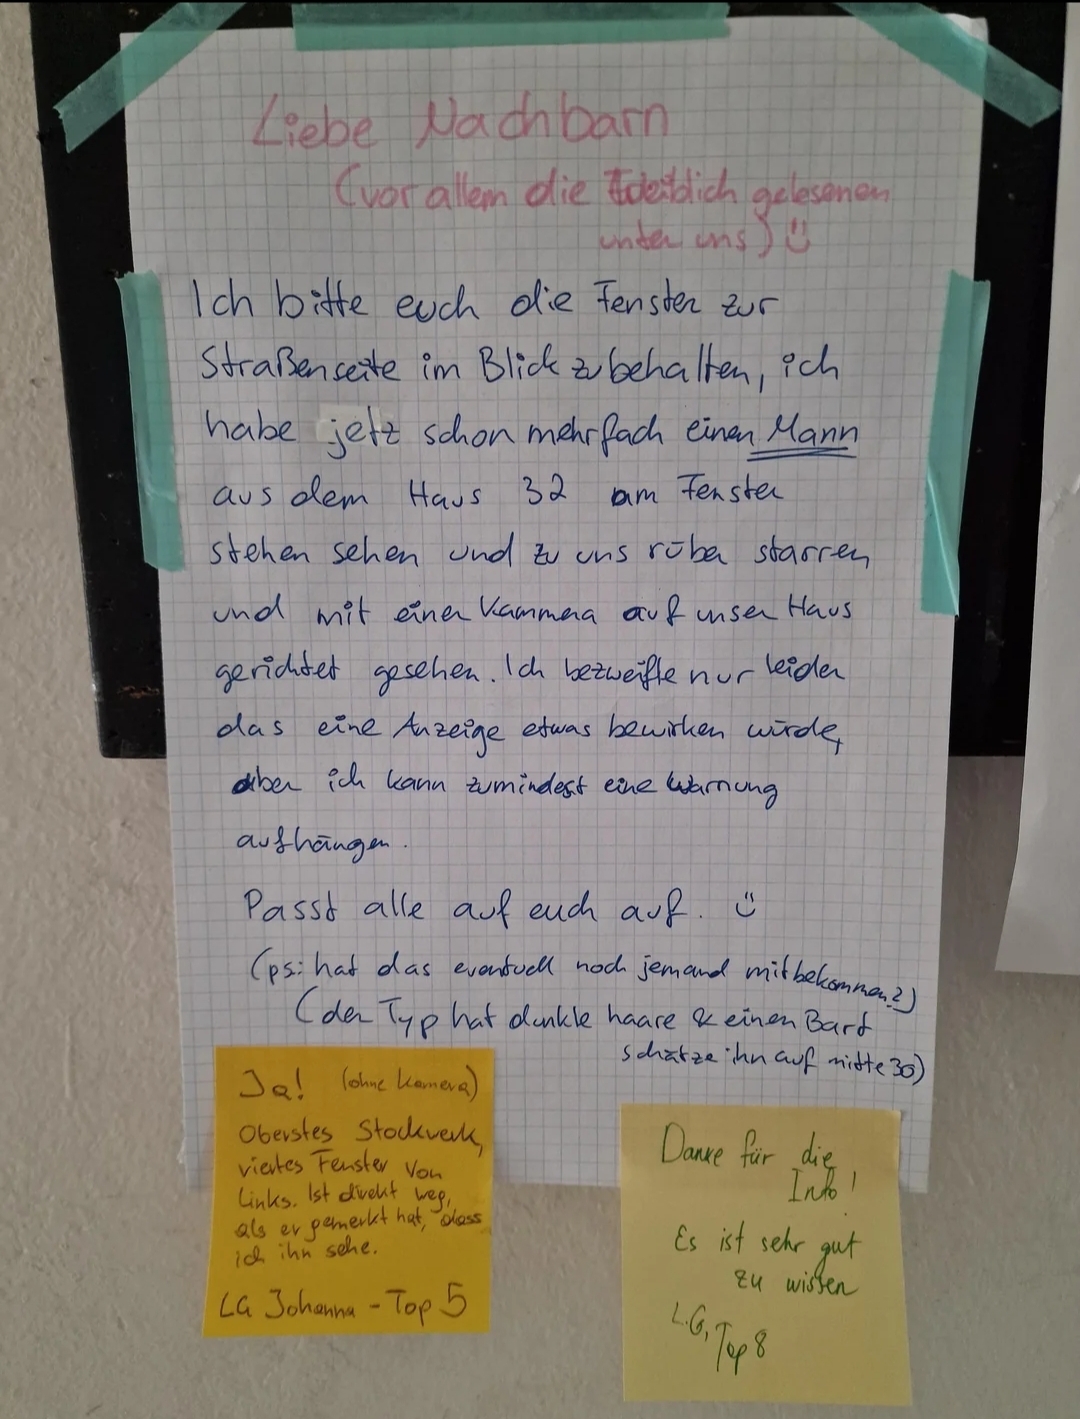 Liebe Nachbarn
(vor allem die weiblich gelesenen
unter uns) :)
Ich bitte euch die Fenster zur
Straßenseite im Blick zu behalten, ich
habe jetz schon mehrfach einen Mann
aus dem Haus 32 am Fenster
stehen sehen und zu uns rüba starren
und mit einer Kammera auf unser Haus
gerichtet gesehen. Ich bezweifle nur leider
das eine Anzeige etwas bewirken würde,
aber ich kann zumindest eine Warnung
aufhängen.
Passt alle auf euch auf. :)
(ps: hat das eventuell noch jemand mitbekommen?)
(der Typ hat dunkle haare & einen Bart
schätze ihn auf mitte 30)
Ja! (ohne Kamera)
Oberstes Stockwerk,
viertes Fenster von
Links. Ist direkt weg,
als er gemerkt hat, dass
ich ihn sehe.
LG Johanna - Top 5
Danke für die
Info!
Es ist sehr gut
zu wissen
L.G,
Top 8